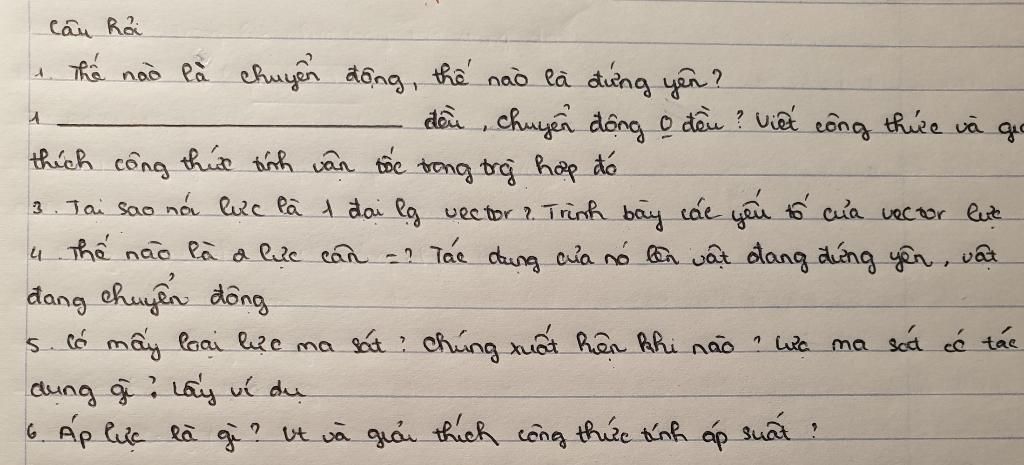 Câu hỏi
1. Thế nào là chuyển động, thế nào là đứng yên?
1 ____________ đều, chuyển động o đều? Viết công thức và giả
thích công thức tính vận tốc trong trg hợp đó
3. Tại sao nói lực là 1 đại lg vector? Trình bày các yếu tố của vector lực
4. Thế nào là 2 lực cân =? Tác dụng của nó lên vật đang đứng yên, vật
đang chuyển động
5. Có mấy loại lực ma sát? Chúng xuất hiện khi nào? Lực ma sát có tác
dụng gì? Lấy ví dụ
6. Áp lực là gì? Vt và giải thích công thức tính áp suất?